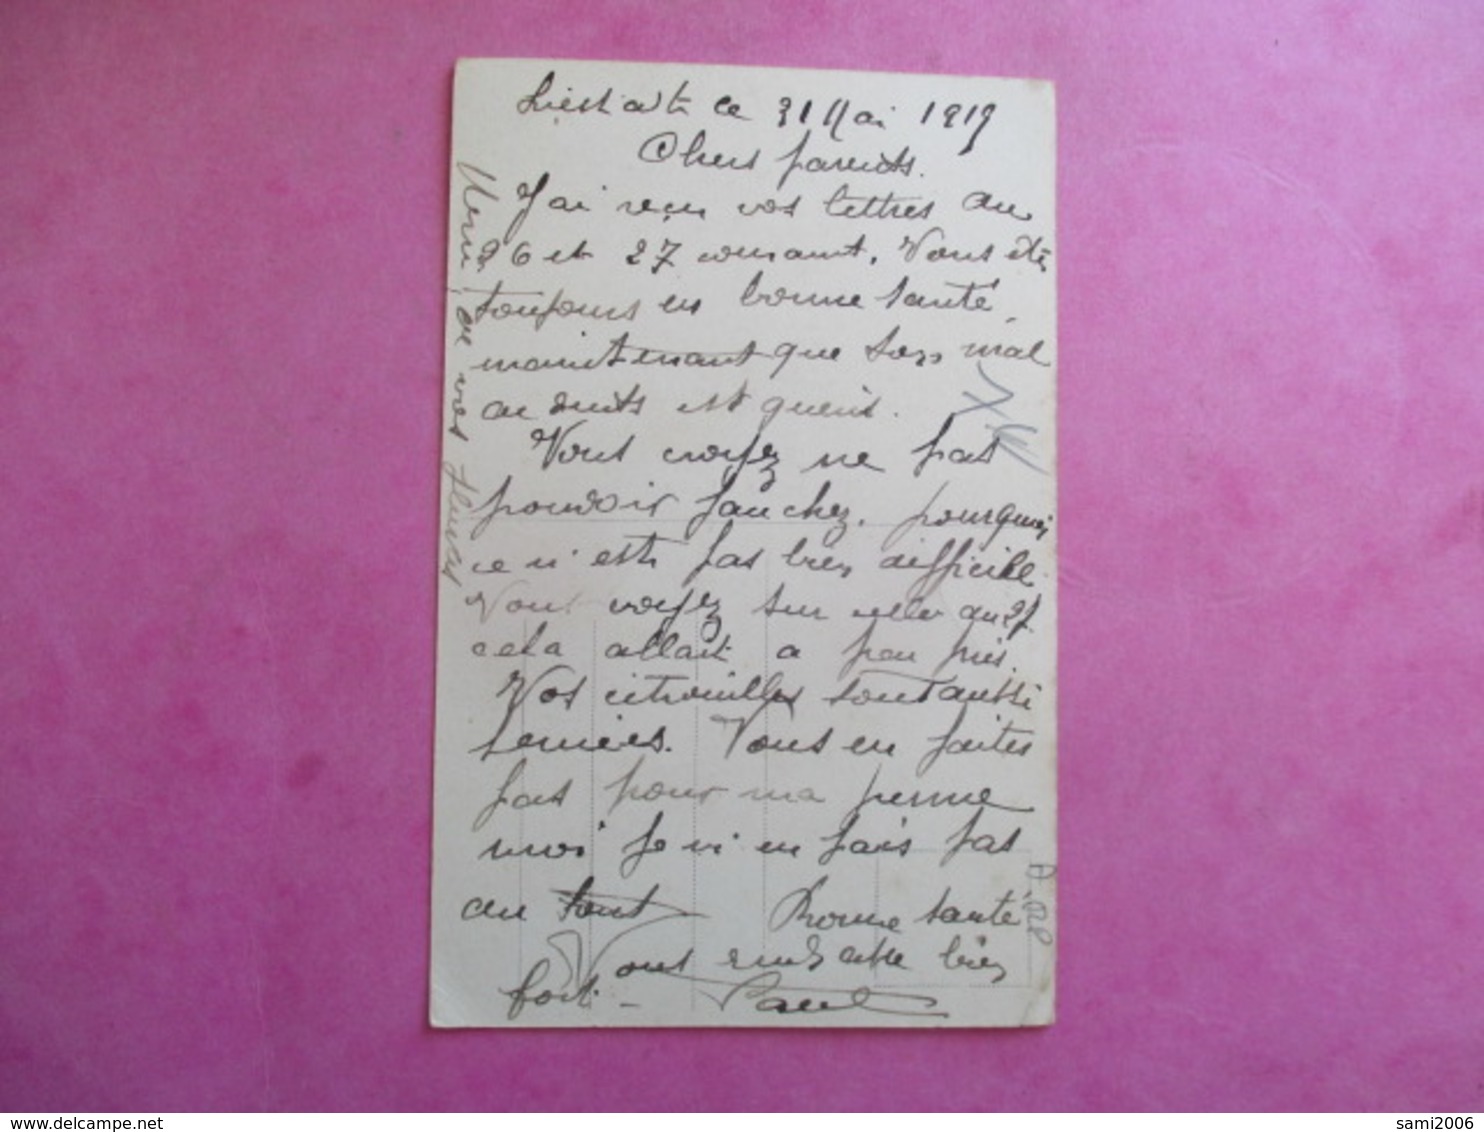 ce 31 Mai 1919
Chers parents.
J'ai reçu vos lettres du
26 et 27 courant. Vous êtes
toujours en bonne santé,
maintenant que ton mal
au doits est guerit.
Vous croyez ne pas
pouvoir fauchez. pourquoi
ce n'est pas bien difficile
Vous voyez sur celle du 27
cela allait a peu près.
Vos citrouilles sont aussi
Vous en faites
pas pour ma perme
moi je ni en fais pas
du tout Bonne santé
Vous embrasse bien
fort. Paul
Merci de vos fleurs
delcampe.net
sami2006